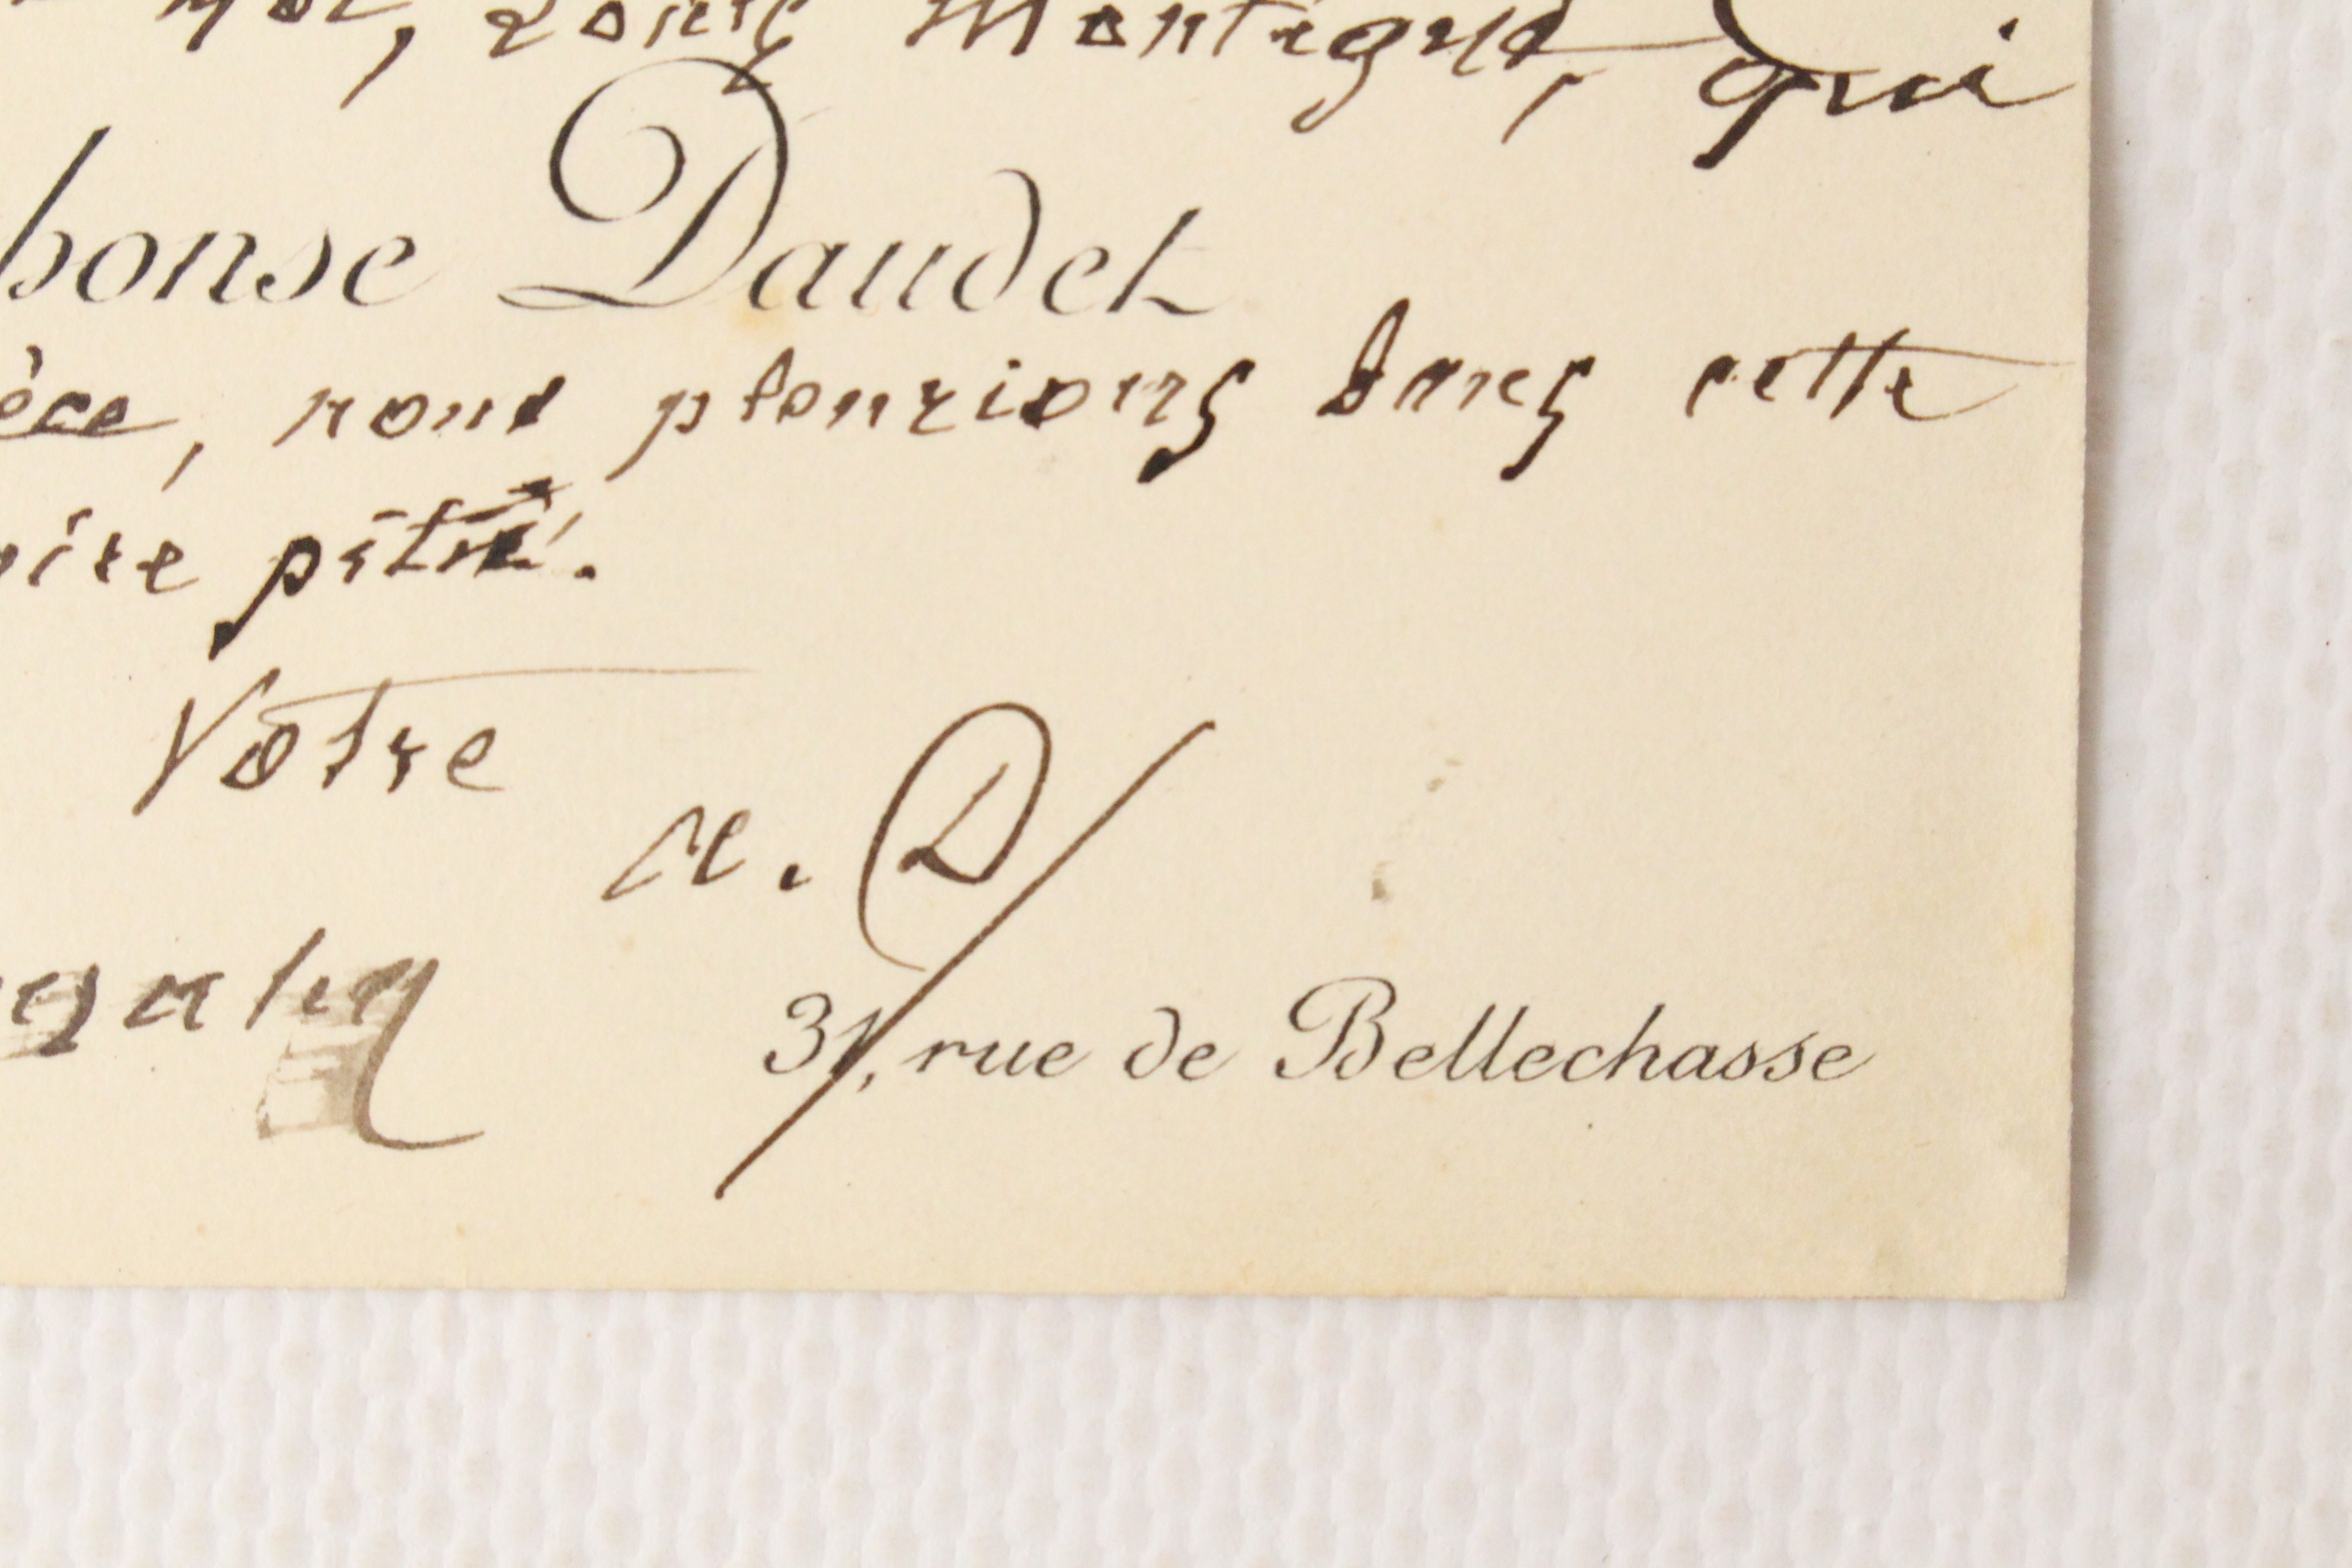 moi, sans Montigny, qui
phonse Daudet
èce, nous pleurions dans cette
oire pitié.
Votre
A. D
31, rue de Bellechasse